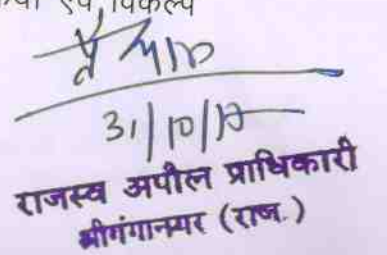 एवं विकल्प
31/10/17
राजस्व अपील प्राधिकारी
श्रीगंगानगर (राज.)